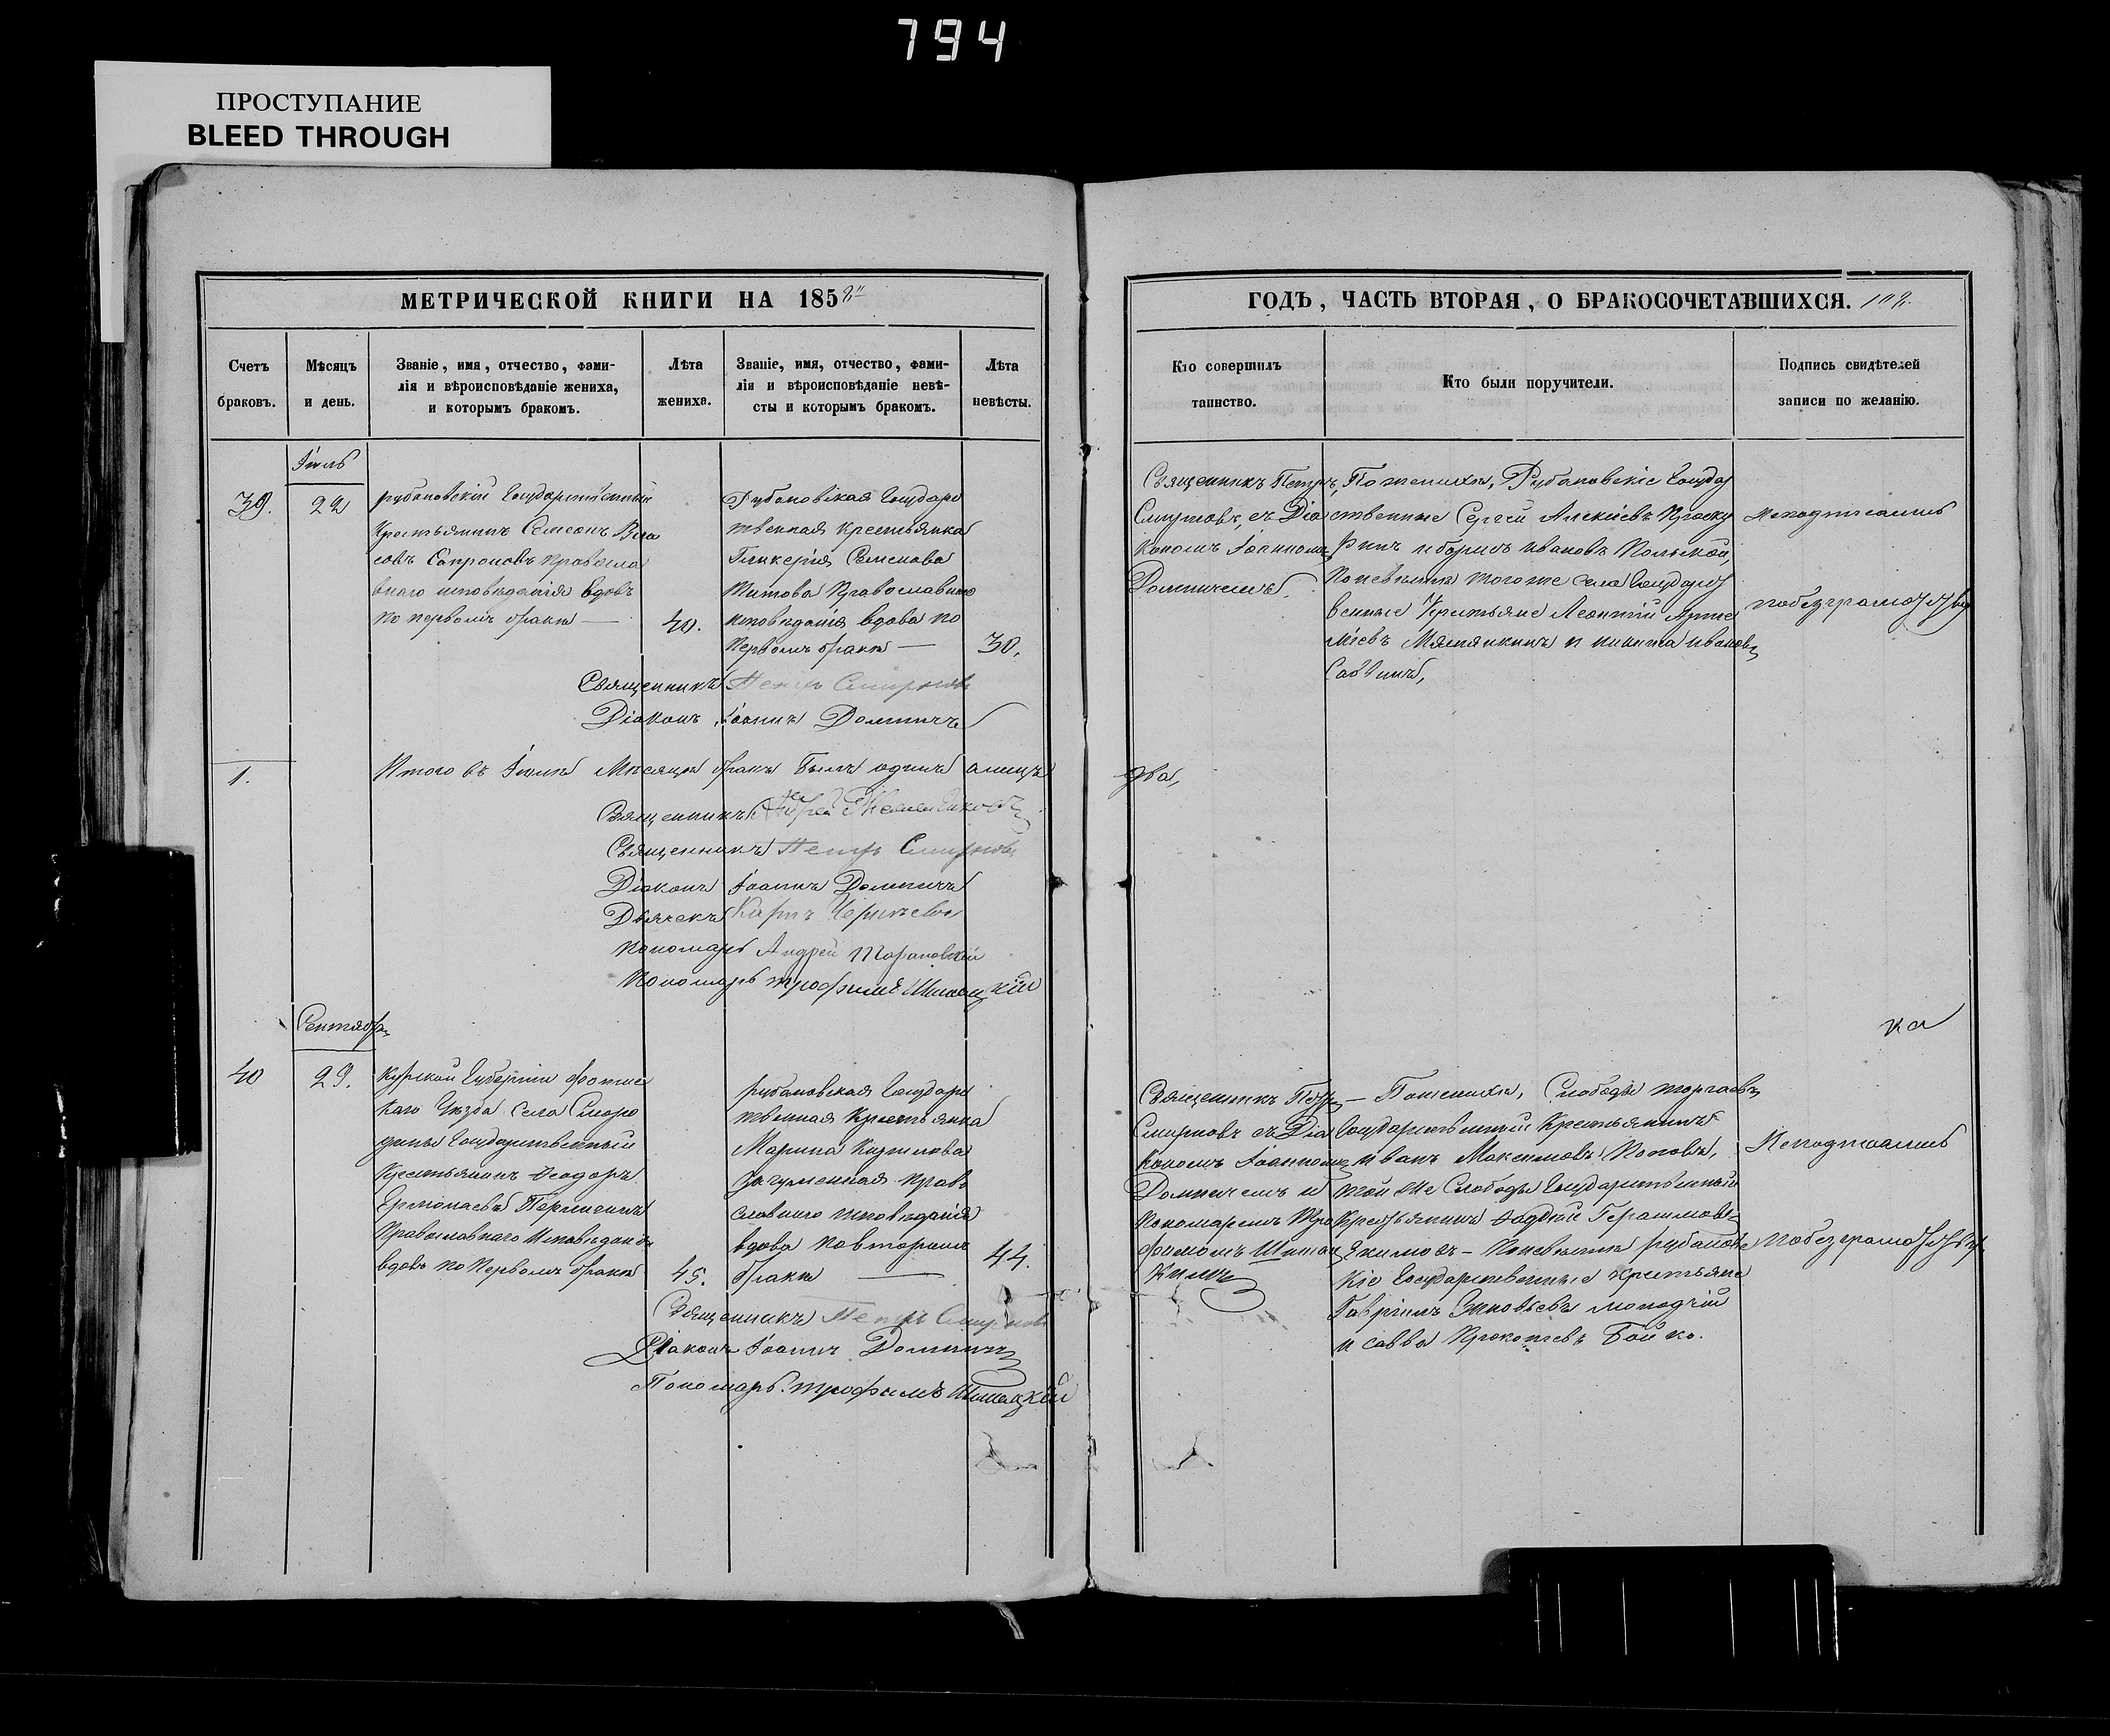 794
ПРОСТУПАНИЕ
BLEED THROUGH
МЕТРИЧЕСКОЙ КНИГИ НА 1858
Счетъ браковъ.
Мѣсяцъ и день.
Званіе, имя, отчество, фами-
лія и вѣроисповѣданіе жениха,
и которымъ бракомъ.
Лѣта жениха.
Званіе, имя, отчество, фами-
лія и вѣроисповѣданіе невѣ-
сты и которымъ бракомъ.
Лѣта невѣсты.
Іюль
39.
22
рубановскій Государственный
Крестьянинъ Симеонъ Вла
совъ Сапроновъ Правосла
внаго исповѣданія вдовъ
по первомъ бракѣ
40.
Рубановская Государс
твенная крестьянка
Гликерія Семенова
Титова Православнаго
исповѣданія вдова по
первомъ бракѣ
30.
Священникъ Петръ Смирновъ
Діаконъ Іоаннъ Домничъ
1.
Итого въ Іюлѣ Мѣсяцѣ бракъ былъ одинъ а лицъ
Священникъ Андрей
Священникъ Петръ Смирновъ
Діаконъ Іоаннъ Домничъ
Дьячекъ Карпъ
Пономарь Андрей Тарановскій
Пономарь трофимъ Шишацкій
Сентябрь
40
29.
Курской Губерніи
каго Уѣзда Села Сморо
дины Государственный
Крестьянинъ Ѳеодоръ
Ермолаевъ
Православнаго Исповѣданія
вдовъ по Первомъ бракѣ
45.
рубановская Государс
твенная Крестьянка
Марина Кирилова
Загуменная Прав
славнаго исповѣданія
вдова по второмъ
бракѣ
44.
Священникъ Петръ Смирновъ
Діаконъ Іоаннъ Домничъ
Пономарь трофимъ Шишацкій
ГОДЪ, ЧАСТЬ ВТОРАЯ, О БРАКОСОЧЕТАВШИХСЯ.
Кто совершилъ таинство.
Кто были поручители.
Подпись свидѣтелей
записи по желанію.
Священникъ Петръ
Смирновъ, съ Діа
кономъ Іоанномъ
Домничемъ.
По женихѣ, Рубановскіе Государ
ственные Сергѣй Алексіевъ Проску
ринъ и борисъ ивановъ Польской,
По невѣстѣ того же села Государст
венные Крестьяне Леонтій Арте
міевъ Мялянкинъ и никита ивановъ
Савинъ,
Неподписались
по безграмотству
два,
ка
Священникъ Петръ
Смирновъ съ Діа
кономъ Іоанномъ
Домничемъ и
Пономаремъ Тро
фимомъ Шишац
кимъ
По женихѣ, Слободы торгаевъ
Государственный Крестьянинъ
иванъ Максимовъ Поповъ,
той же Слободы Государственный
Крестьянинъ Ѳадѣй Герасимовъ
Екимовъ - По невѣстѣ рубановс
кіе Государственные крестьяне
Гавріилъ Зиновьевъ молодчій
и савва Прокопіевъ Бойко.
Неподписались
По безграмотству